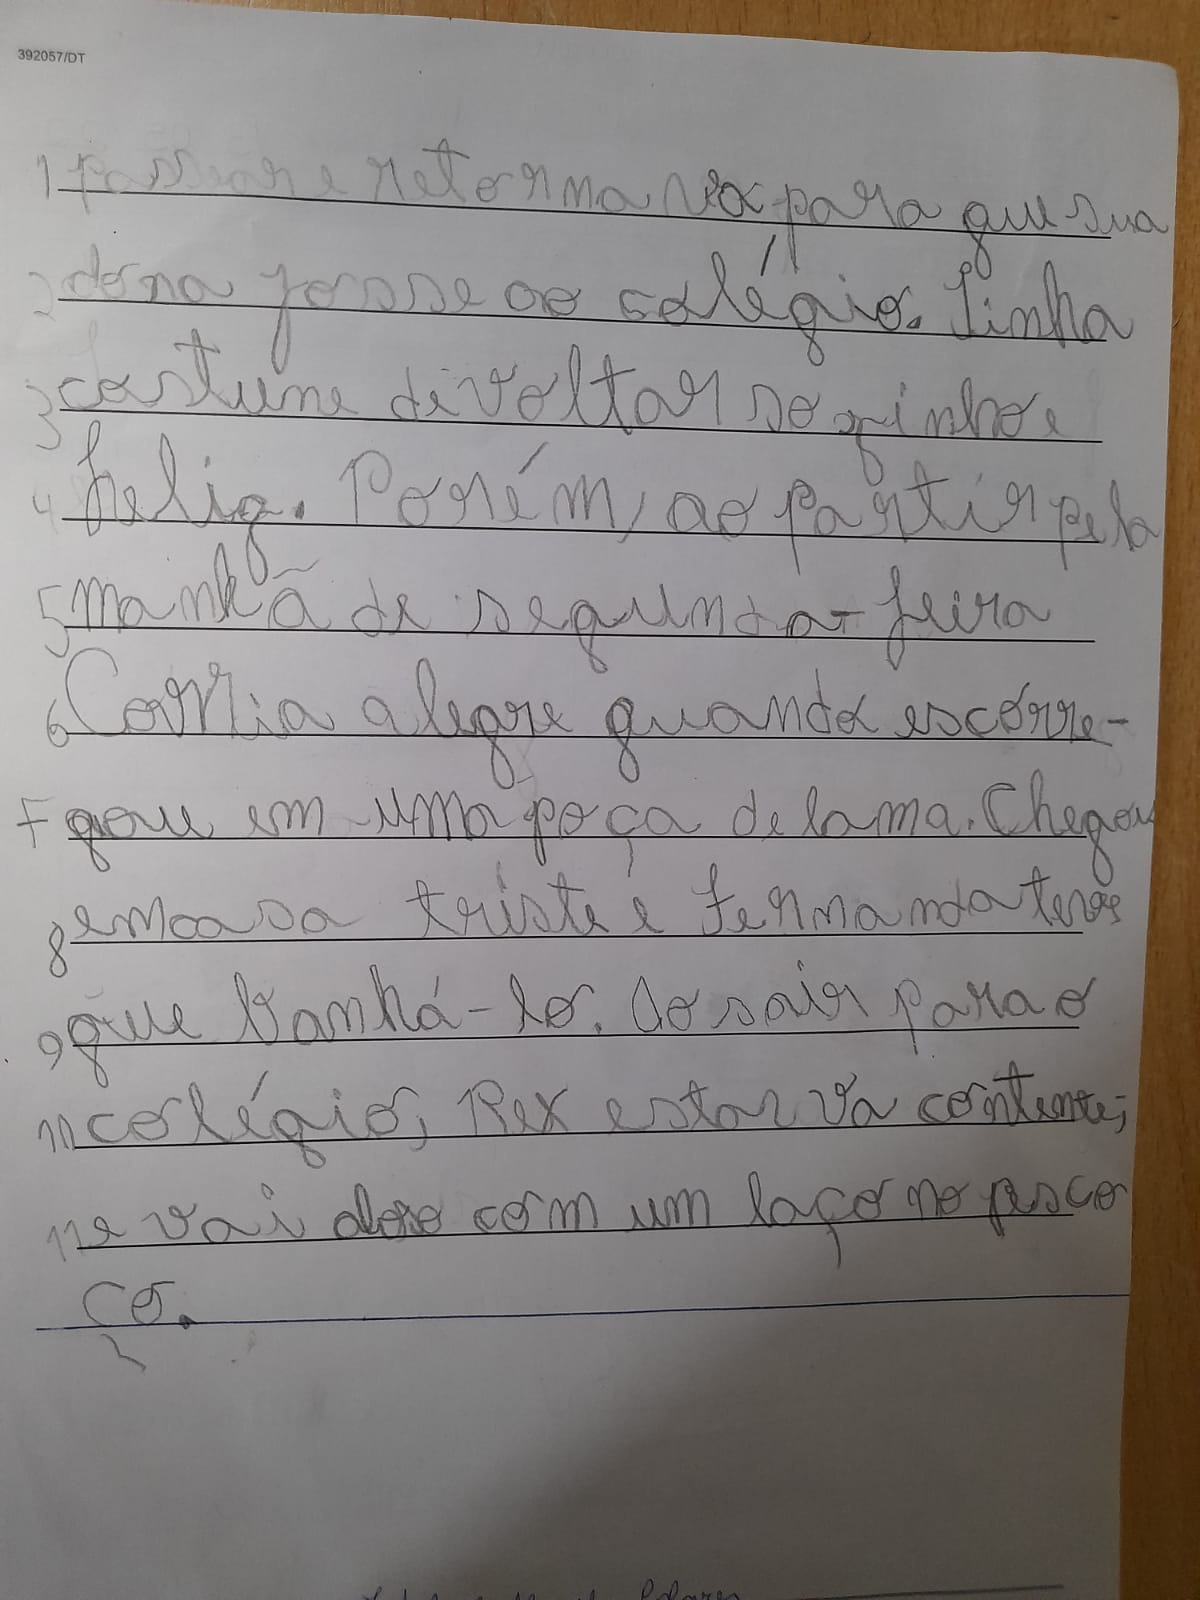 392057/DT
1 passear e retorna vox para que sua
2 dona fosse ao colégio. Tinha
3 costume de voltar soginho e
4 felig. Porém, ao partir pela
5 manhã de segunda-feira
6 Corria alegre quando escorre-
7 gou em uma poça de lama. Chegou
8 em casa triste e Fernanda teve
9 que banhá-lo. Ao sair para o
10 colégio, Rex estava contente,
11 e vai dono com um laço no pesco
ço.